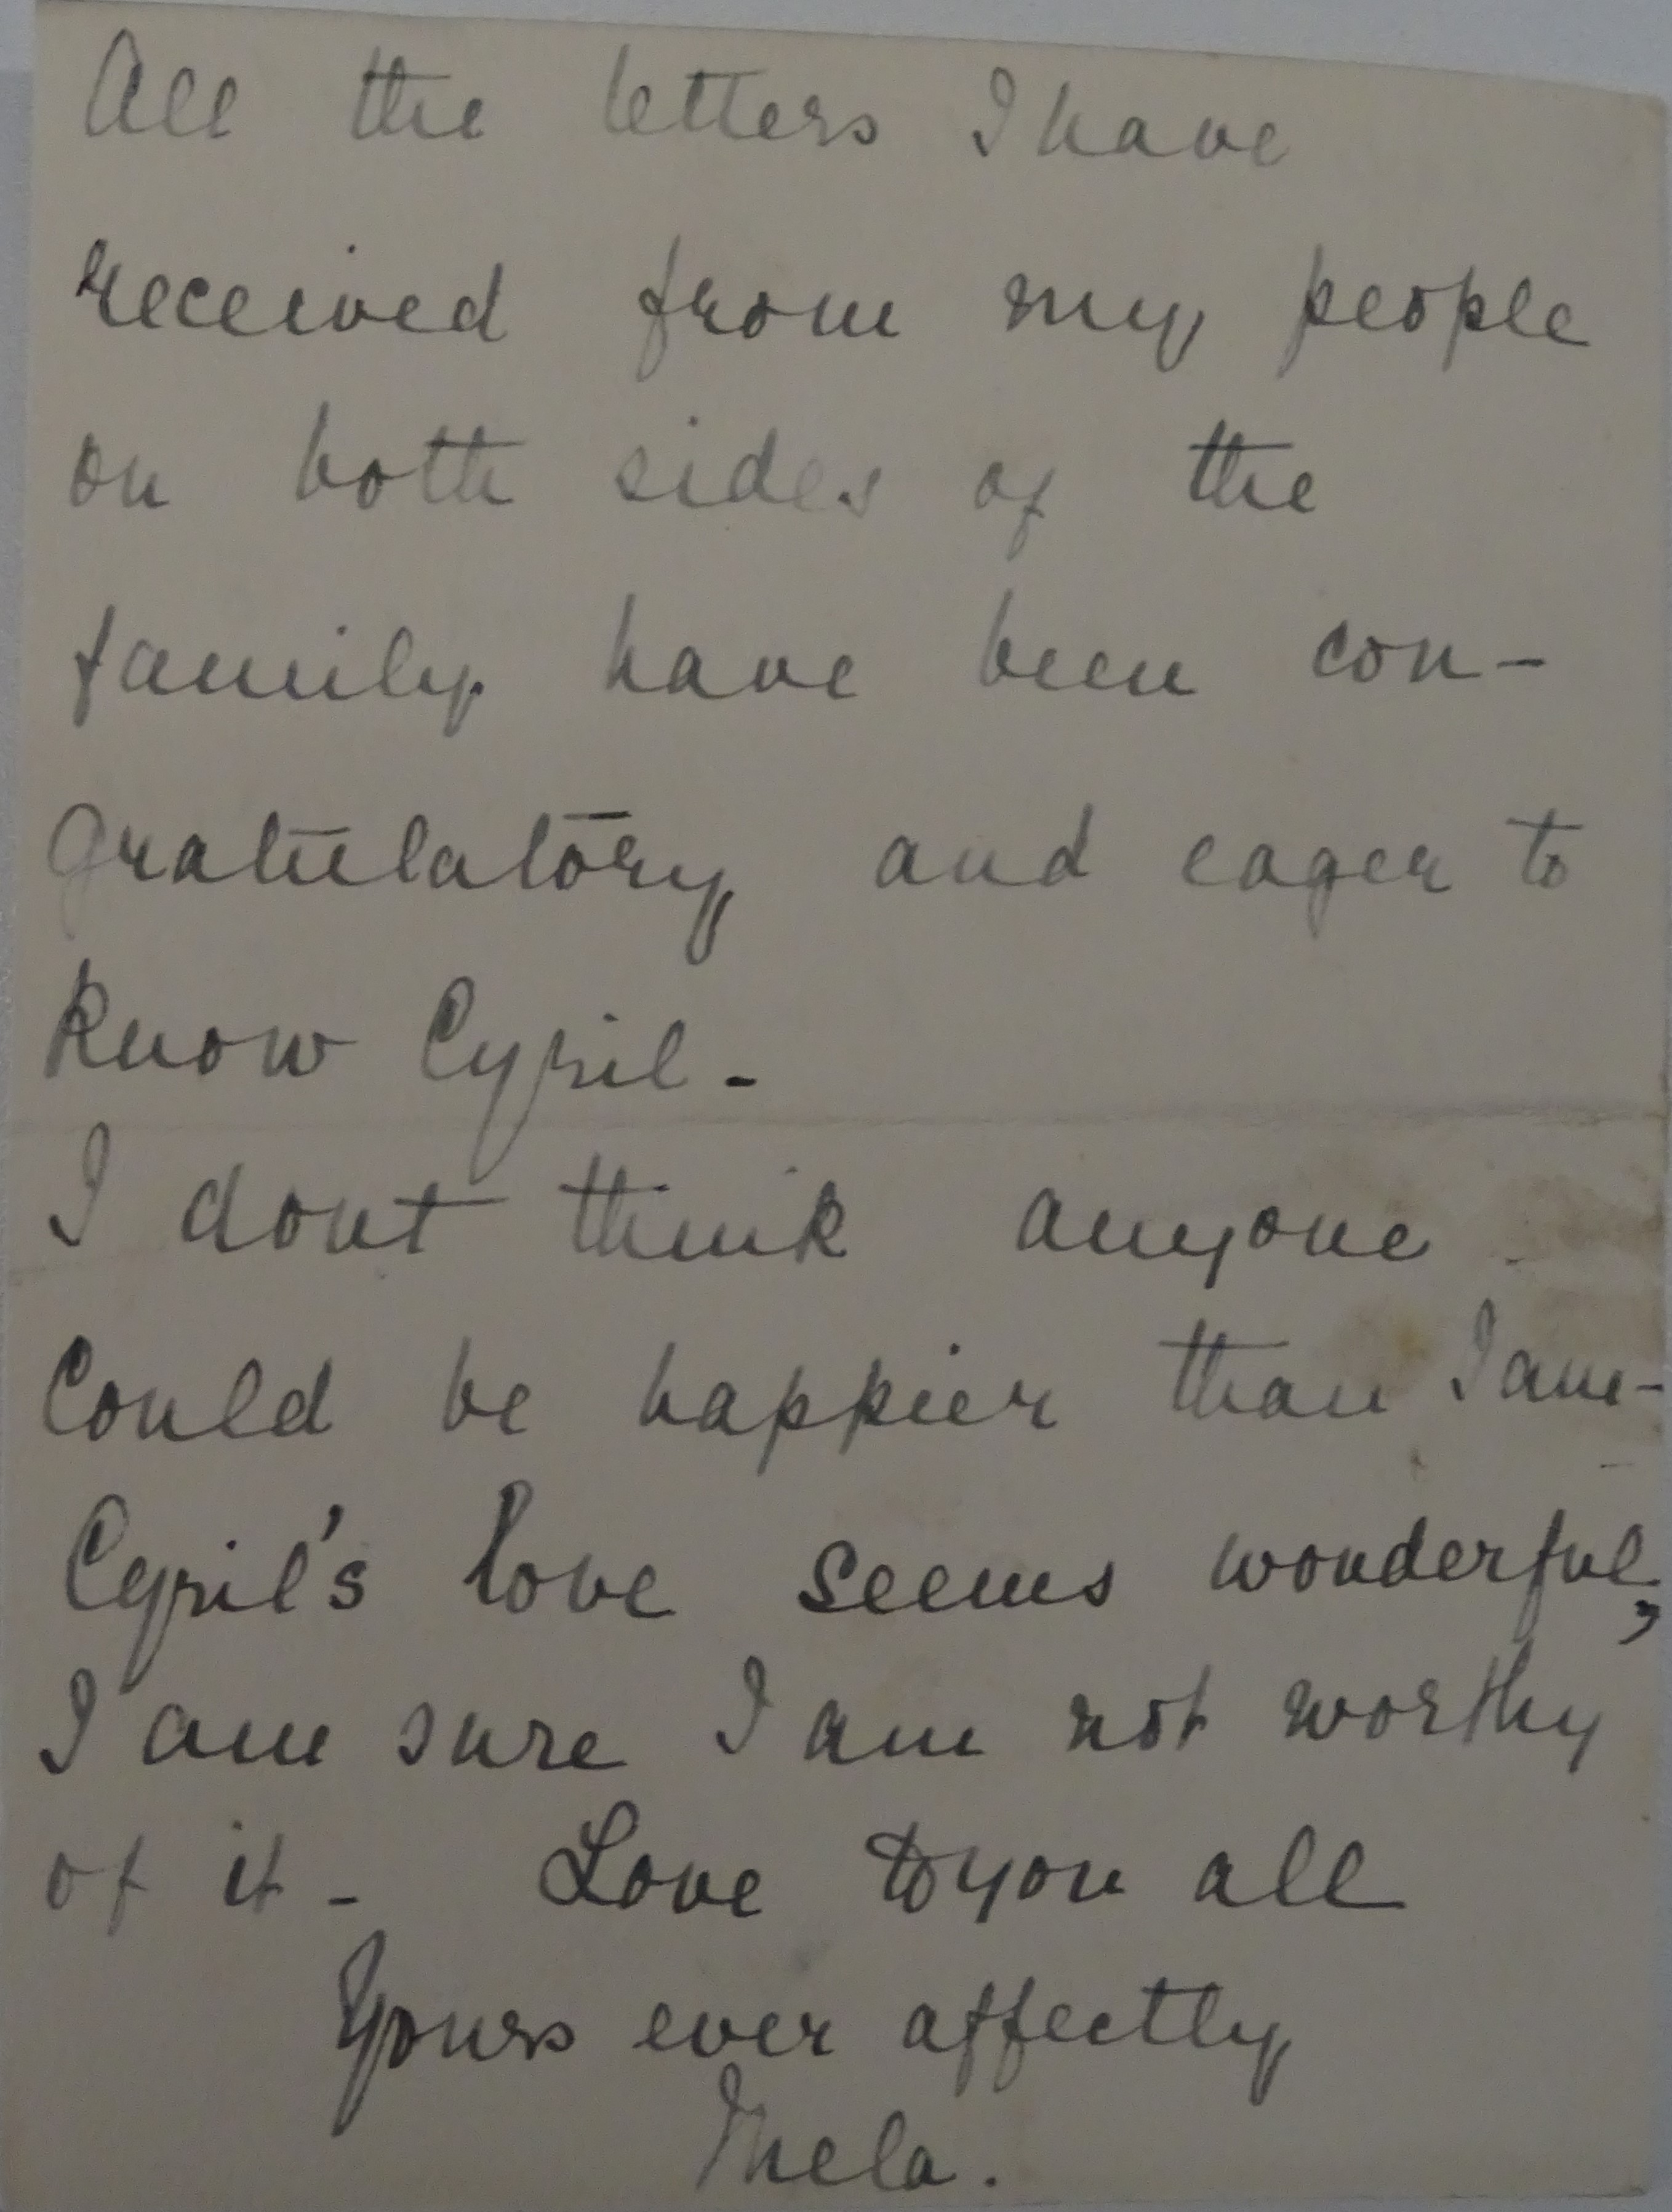 All the letters I have
received from my people
on both sides of the
family have been con-
gratulatory and eager to
know Cyril -
I dont think anyone
could be happier than I am -
Cyril's love seems wonderful,
I am sure I am not worthy
of it - Love to you all
Yours ever affectly
Mela.